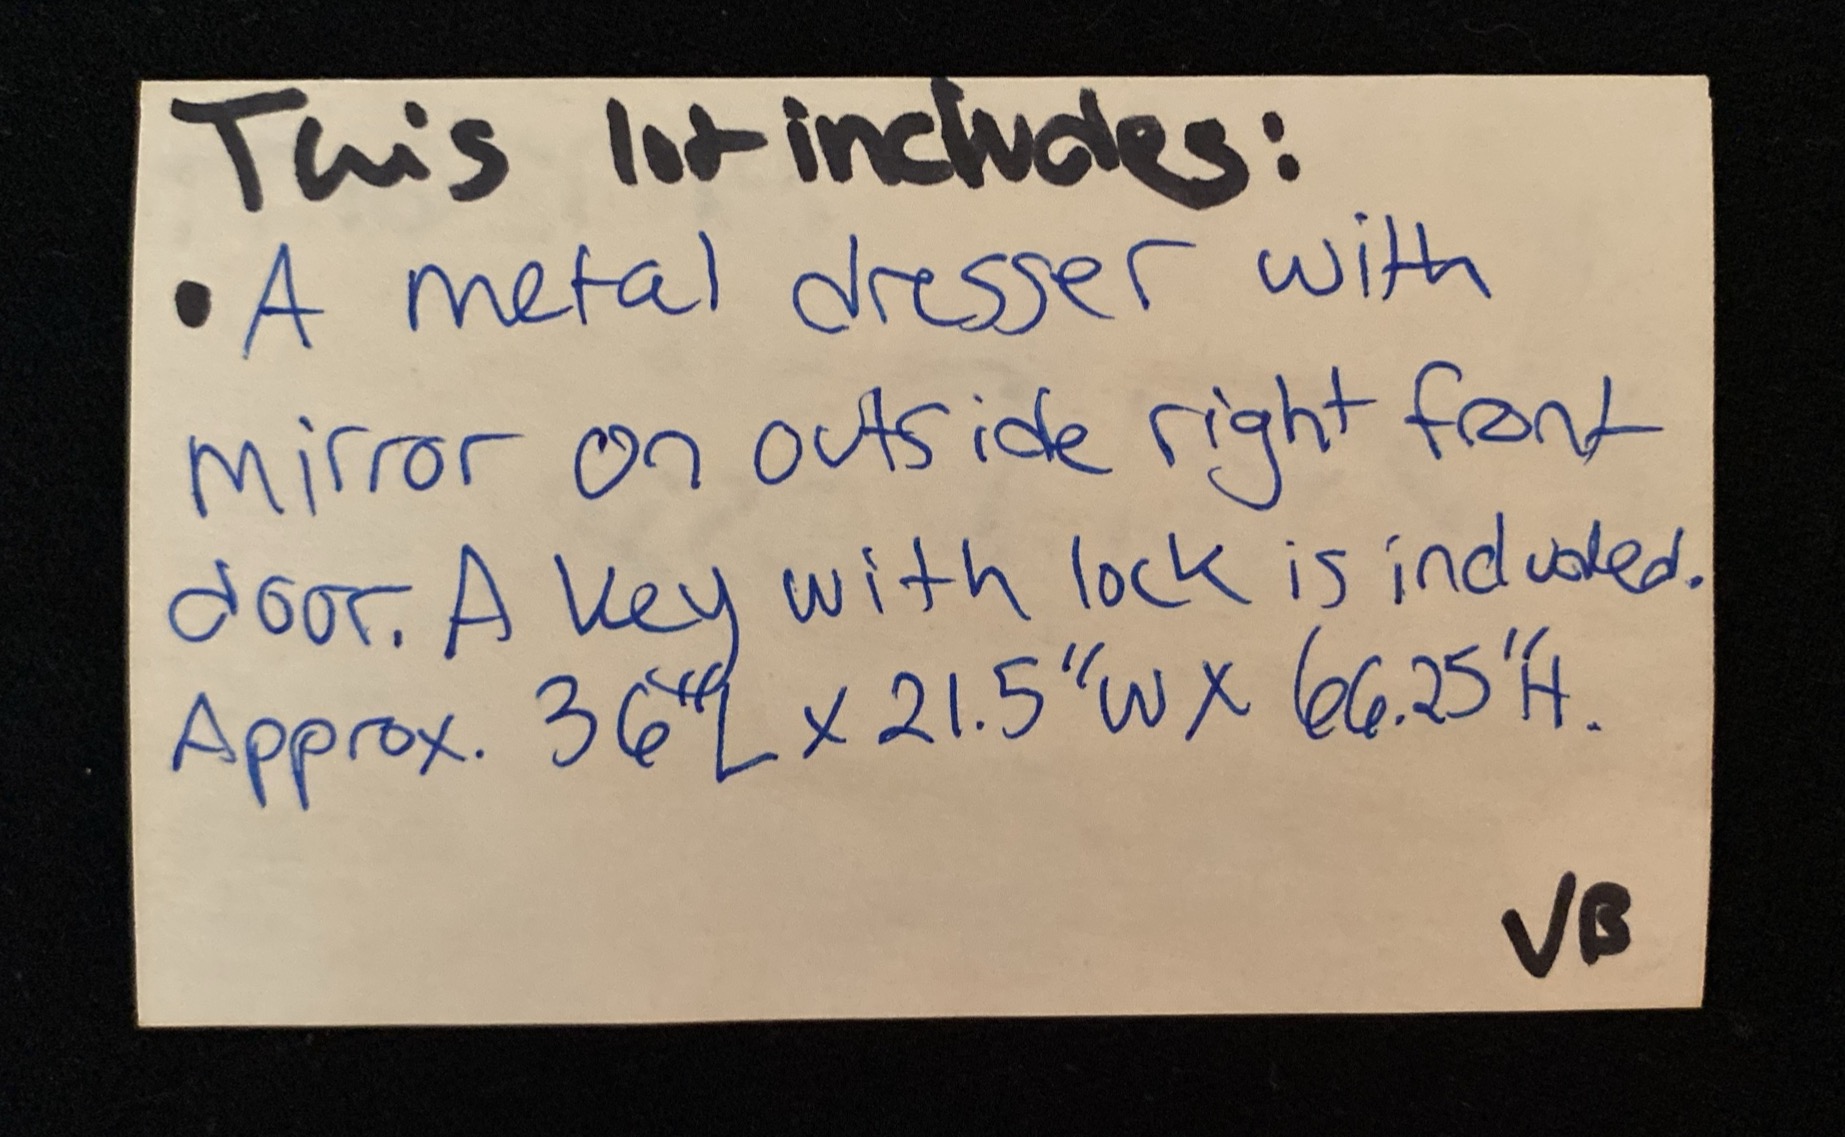 This lot includes:
• A metal dresser with
mirror on outside right front
door. A key with lock is included.
Approx. 36"L x 21.5"W x 66.25"H.
VB